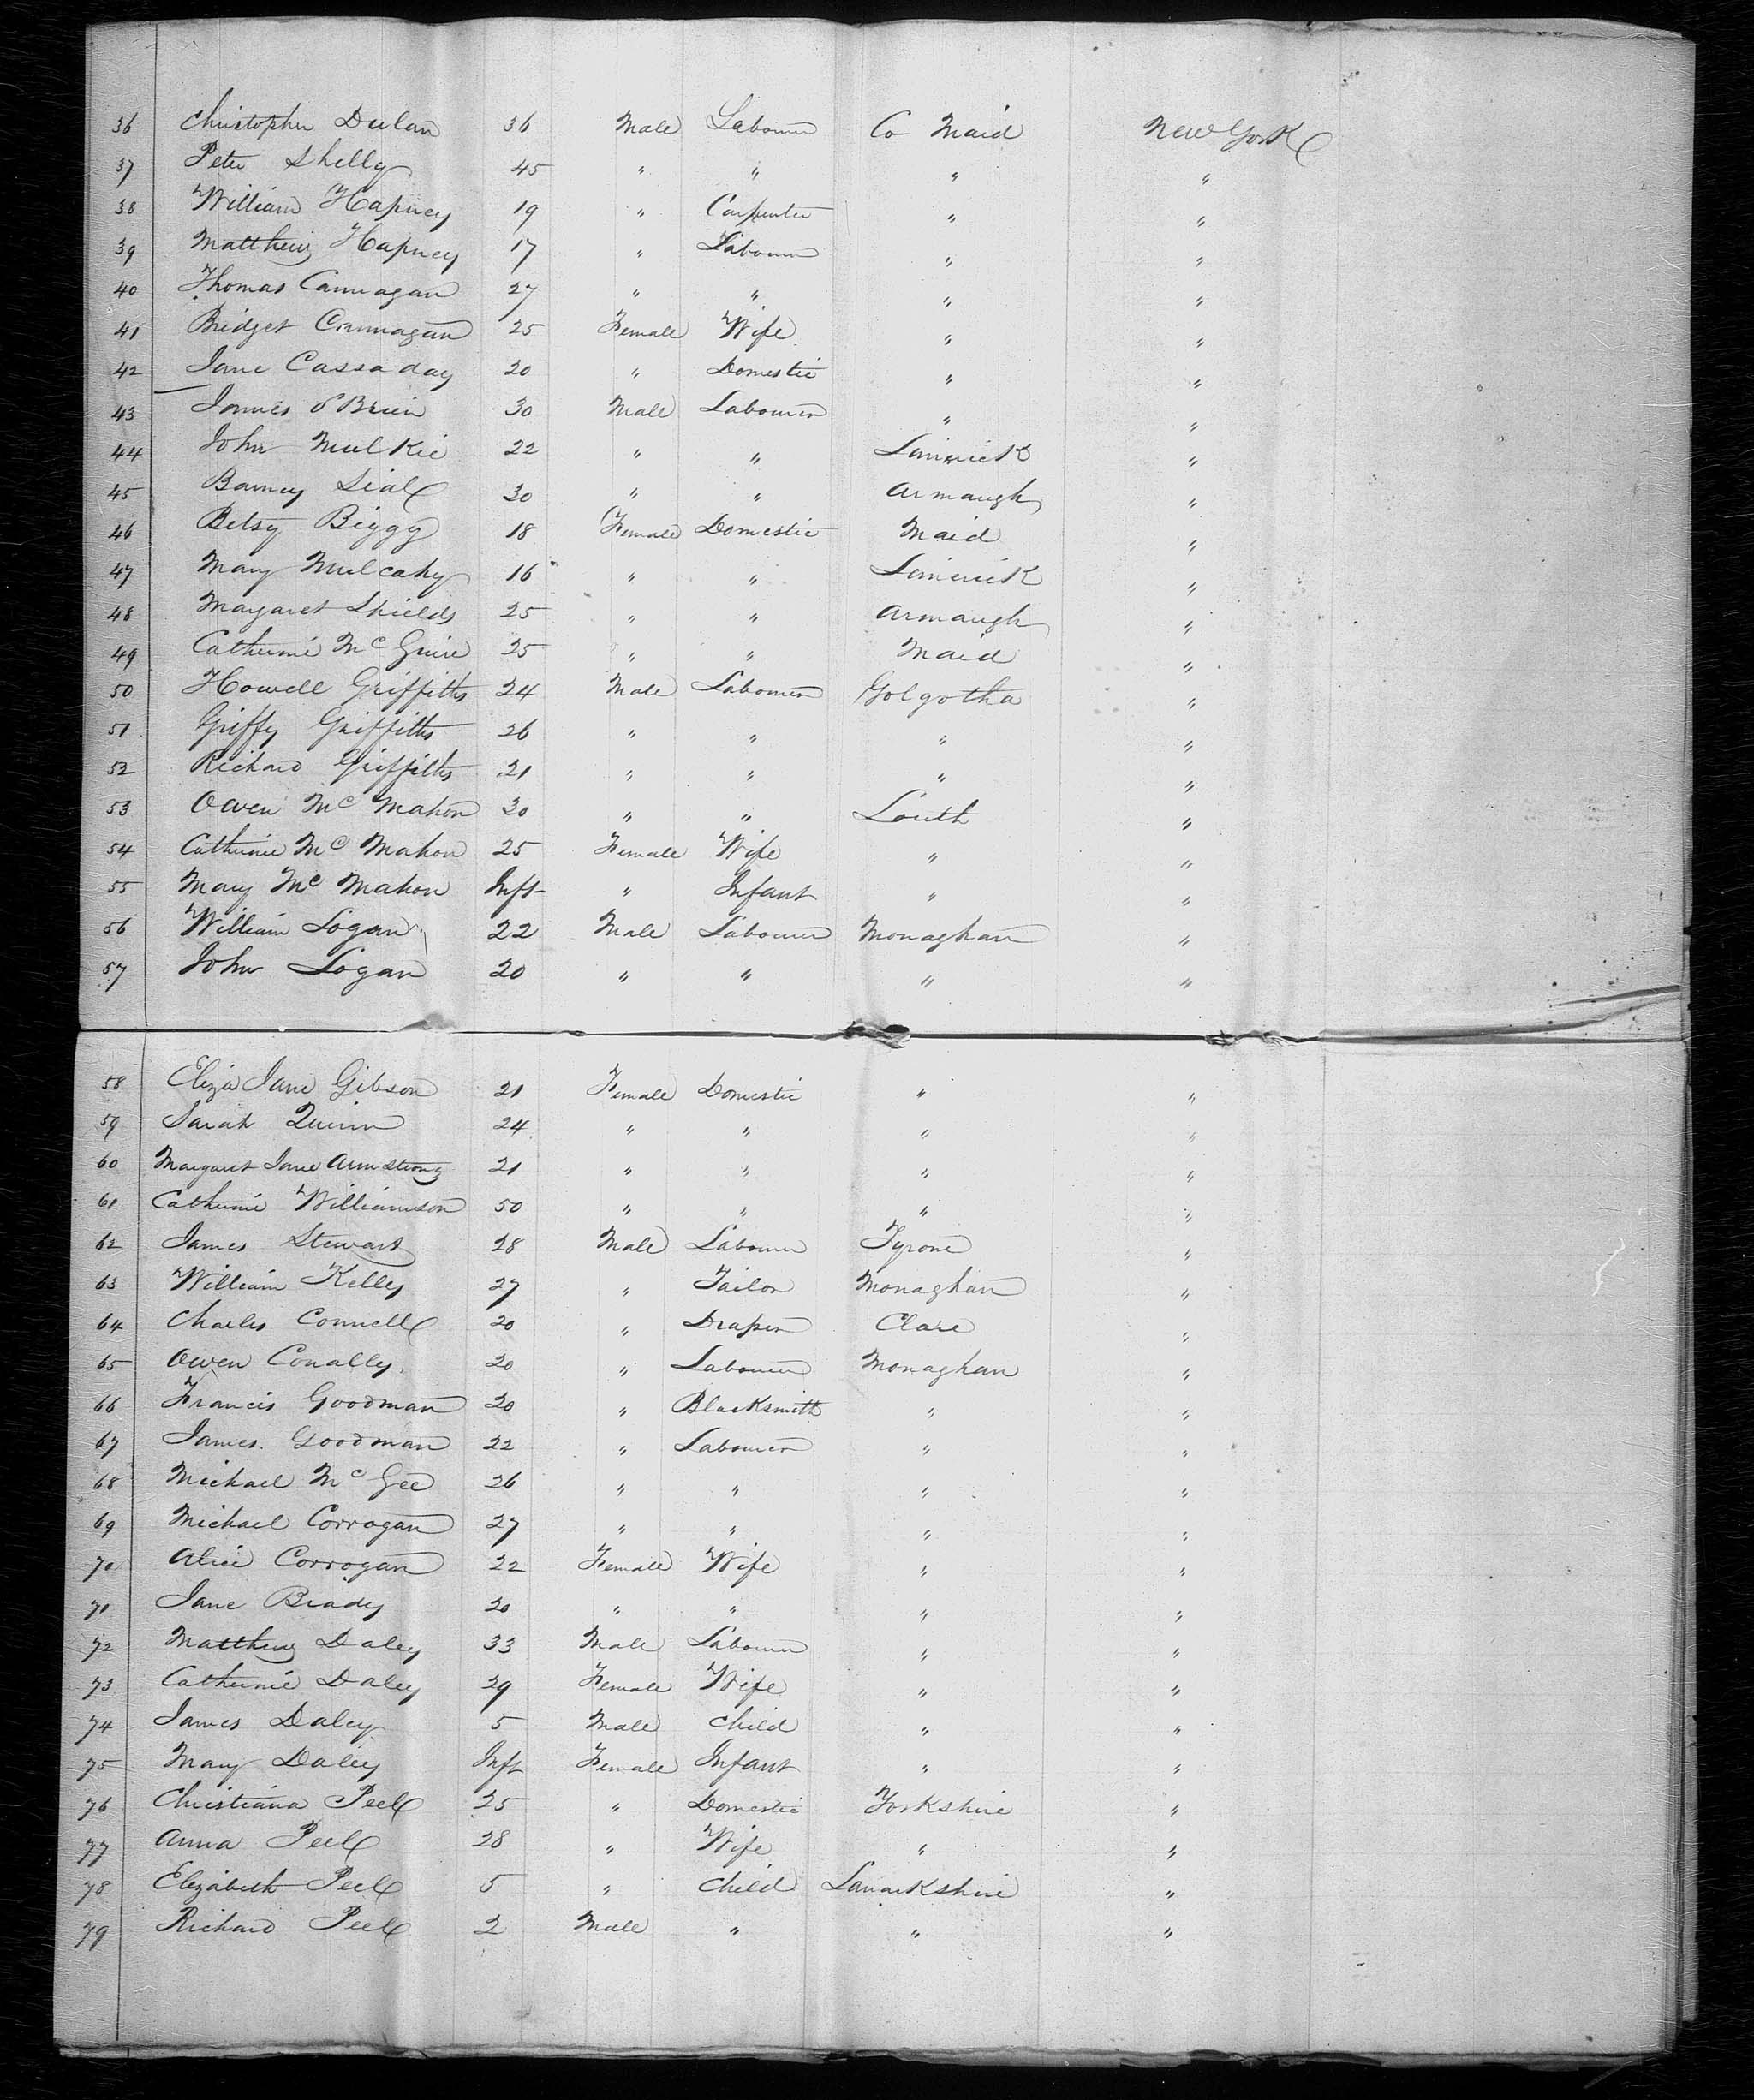 36 Christopher Dulan 36 Male Labourer Co Maid New York
37 Peter Shelly 45 " " " "
38 William Hapney 19 " Carpenter " "
39 Matthew Hapney 17 " Labourer " "
40 Thomas Cannagan 27 " " " "
41 Bridget Cannagan 25 Female Wife " "
42 Jane Cassaday 20 " Domestic " "
43 James O'Brien 30 Male Labourer " "
44 John Mulkie 22 " " Limerick "
45 Barney 30 " " Armaugh "
46 Betsy Biggy 18 Female Domestic Maid "
47 Mary Mulcahy 16 " " Limerick "
48 Margaret Shields 25 " " Armaugh "
49 Catherine McGuire 25 " " Maid "
50 Howell Griffiths 24 Male Labourer Golgotha "
51 Griffy Griffiths 26 " " " "
52 Richard Griffiths 21 " " " "
53 Owen McMahon 30 " " Louth "
54 Catherine McMahon 25 Female Wife " "
55 Mary McMahon Inft " Infant " "
56 William Logan 22 Male Labourer Monaghan "
57 John Logan 20 " " " "
58 Eliza Jane Gibson 21 Female Domestic " "
59 Sarah Quinn 24 " " " "
60 Margaret Jane Armstrong 21 " " " "
61 Catherine Williamson 50 " " " "
62 James Stewart 28 Male Labourer Tyrone "
63 William Kelly 27 " Tailor Monaghan "
64 Charles Connell 20 " Draper Clare "
65 Owen Conally 20 " Labourer Monaghan "
66 Francis Goodman 20 " Blacksmith " "
67 James Goodman 22 " Labourer " "
68 Michael McGee 26 " " " "
69 Michael Corrogan 27 " " " "
70 Alice Corrogan 22 Female Wife " "
71 Jane Brady 20 " " " "
72 Matthew Daley 33 Male Labourer " "
73 Catherine Daley 29 Female Wife " "
74 James Daley 5 Male Child " "
75 Mary Daley Inft Female Infant " "
76 Christiana Peel 25 " Domestic Yorkshire "
77 Anna Peel 28 " Wife " "
78 Elizabeth Peel 5 " Child Lanarkshire "
79 Richard Peel 2 Male " " "